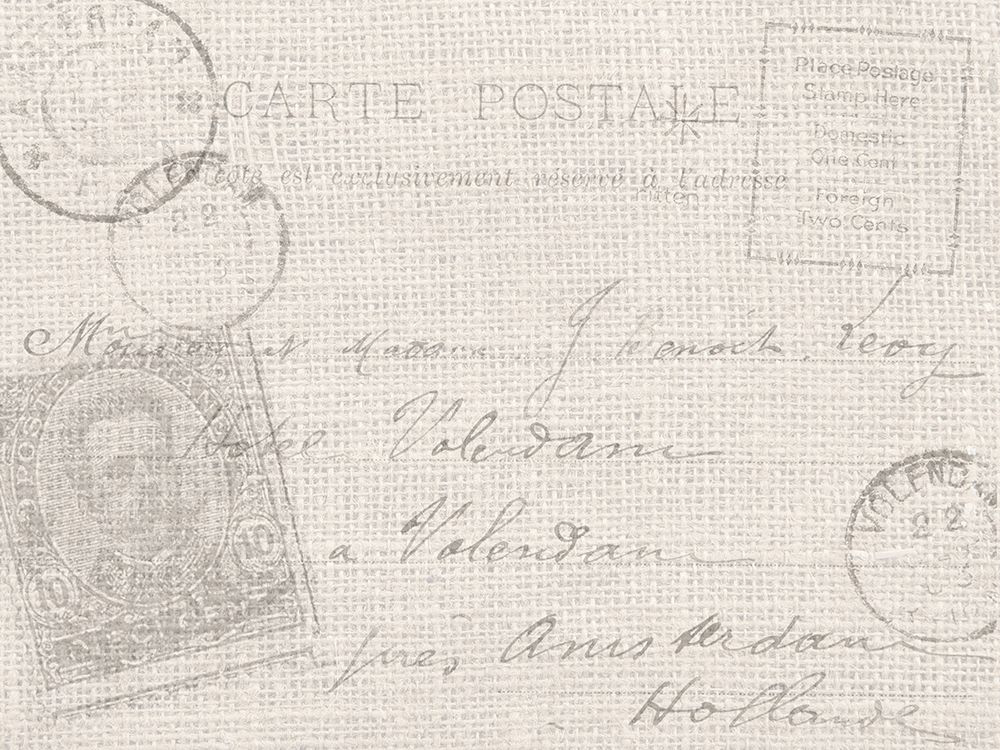 AMSTERDAM
CARTE POSTALE
Place Postage
Stamp Here
Domestic
One Cent
Foreign
Two Cents
côté est exclusivement réservé à l'adresse
VOLENDAM
22
Monsieur et Madame J Benoit Levy
Hotel Volendam
a Volendam
près Amsterdam
Hollande
POSTE
10
10
VOLENDAM
22